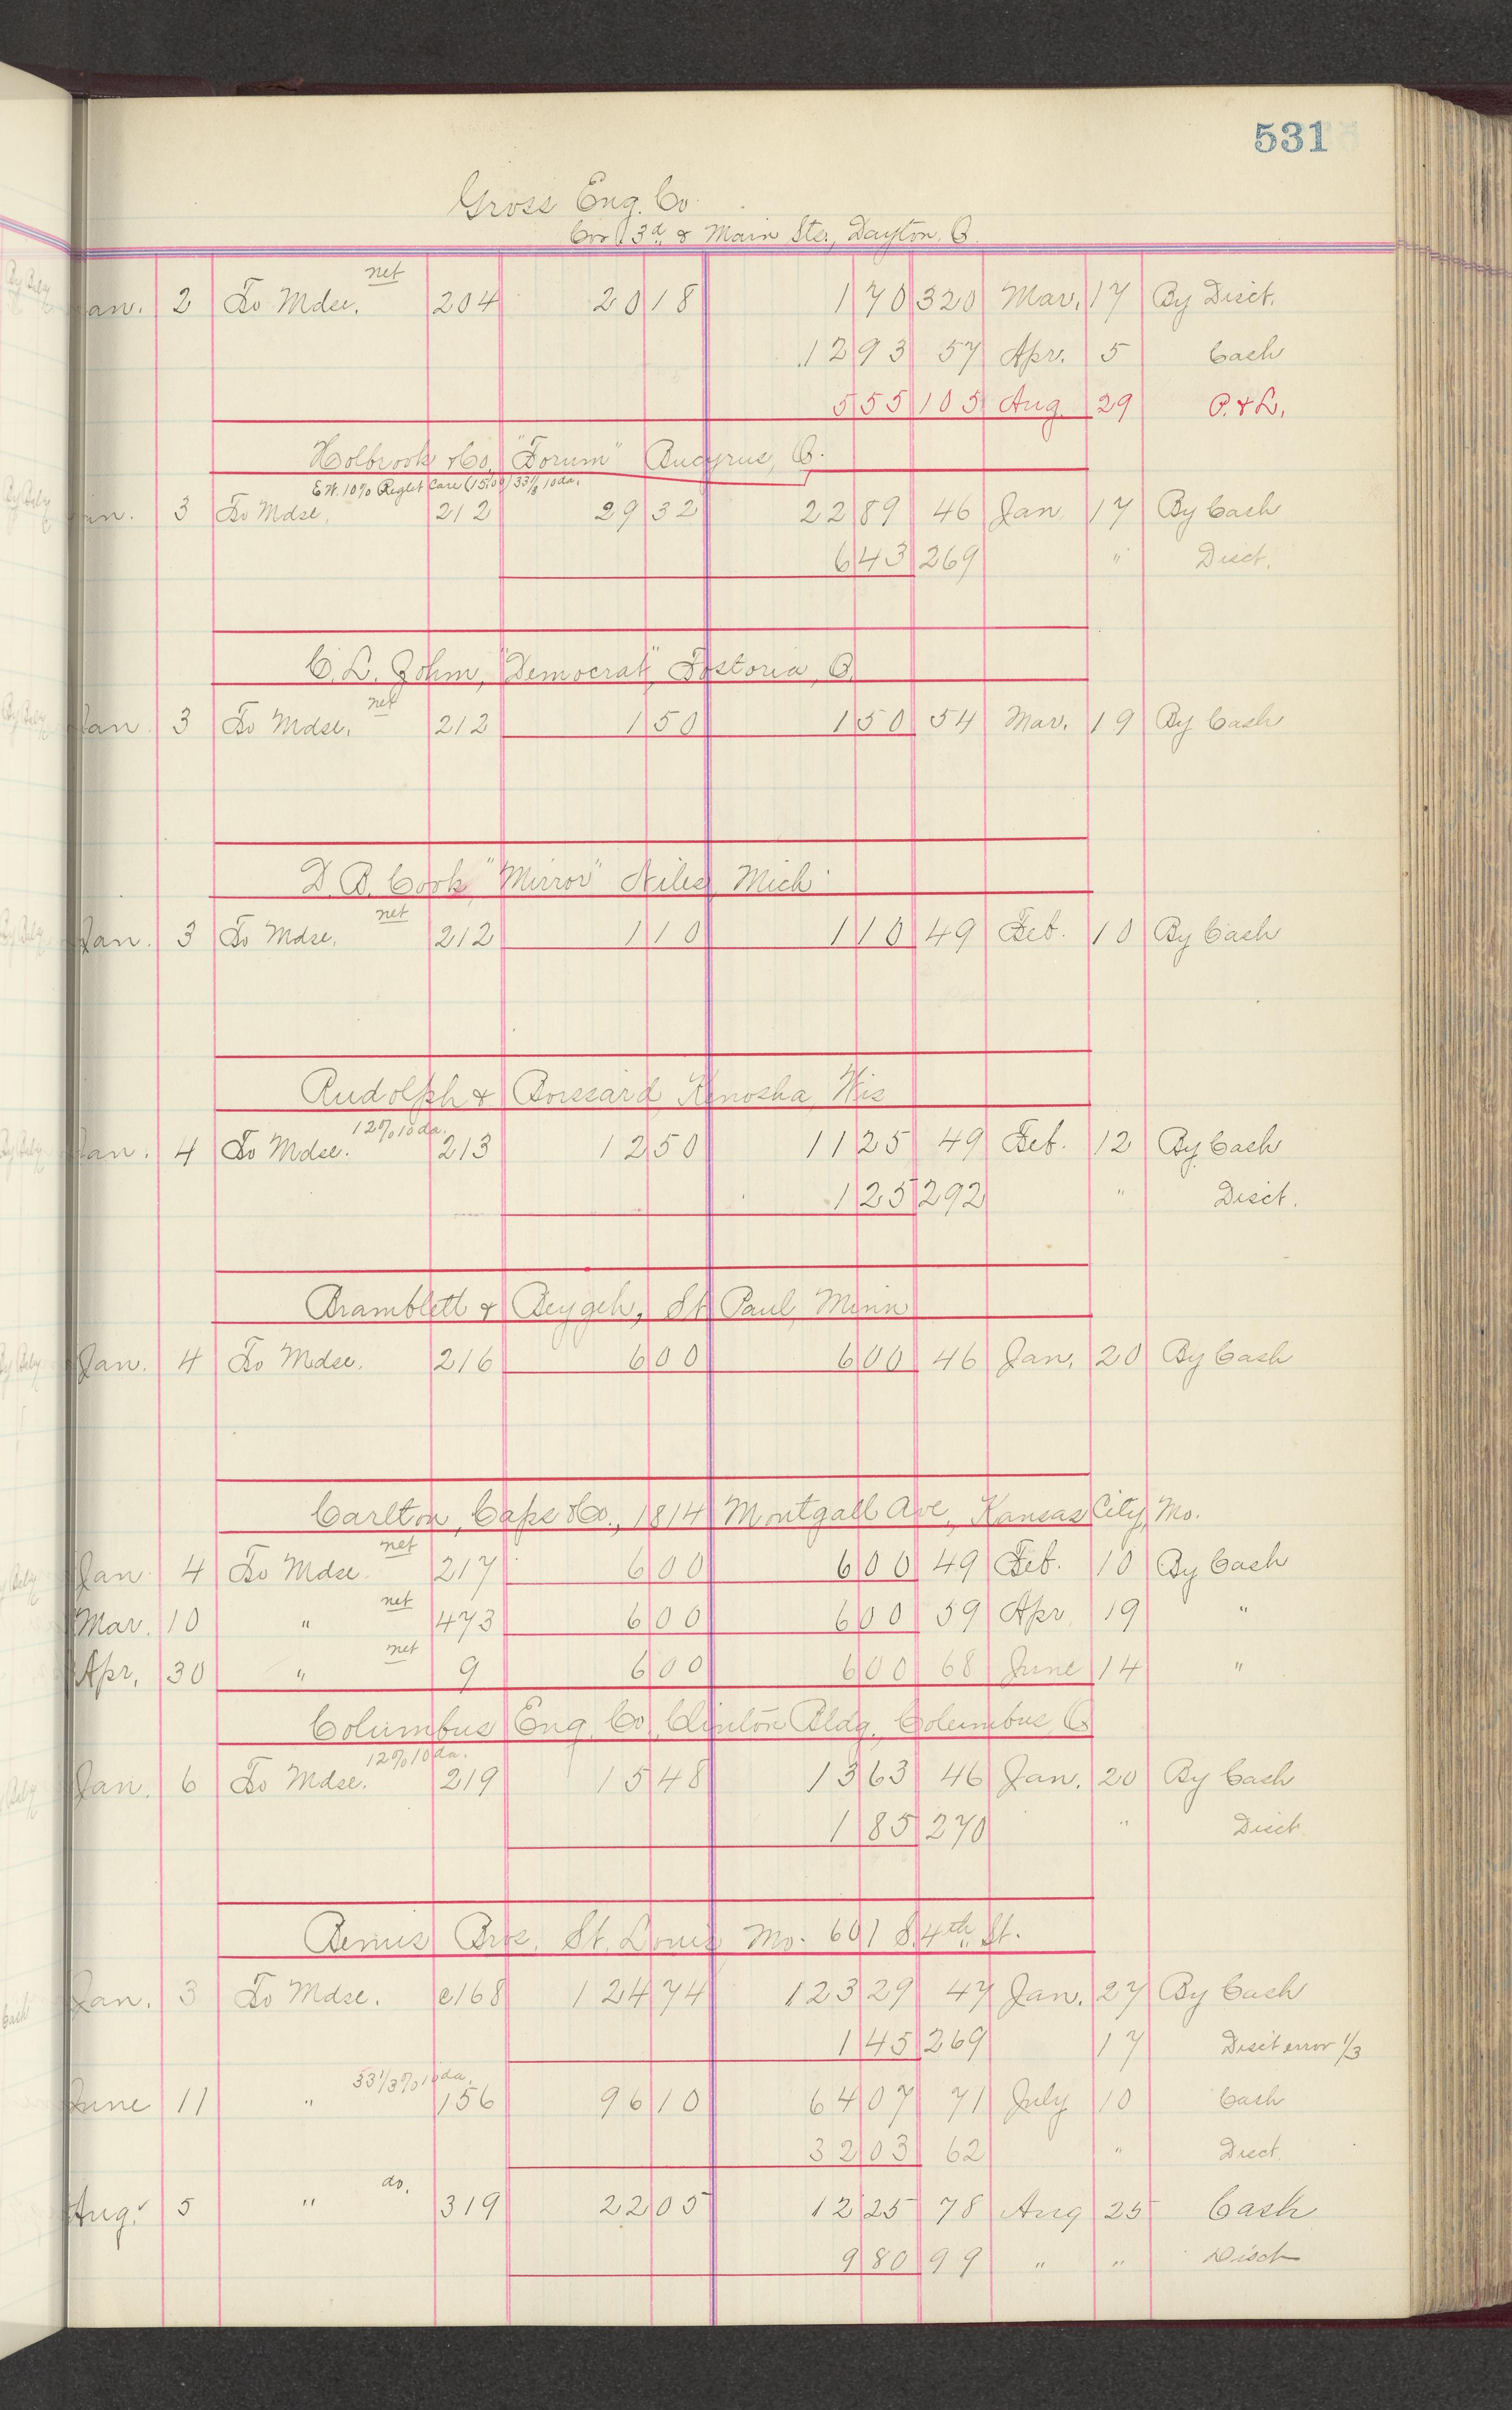 531
Gross Eng. Co.
Cor 3d & Main Sts., Dayton. O.
net
Jan. 2 To Mdse. 204 20 18 1 70 320 Mar. 17 By Disct.
12 93 57 Apr. 5 Cash
5 55 105 Aug. 29 P. & L.
Holbrook & Co. "Forum" Bucyrus, O.
10% Reglet Case (15.00) 33 1/3 10 da.
Jan. 3 To Mdse. 212 29 32 22 89 46 Jan 17 By Cash
6 43 269 " Disct.
C. L. John, "Democrat" Fostoria, O.
net
Jan. 3 To Mdse. 212 1 50 1 50 54 Mar. 19 By Cash
D. B. Cook "Mirror" Niles, Mich.
net
Jan. 3 To Mdse. 212 1 10 1 10 49 Feb. 10 By Cash
Rudolph & Kenosha, Wis
12% 10 da.
Jan. 4 To Mdse. 213 12 50 11 25 49 Feb. 12 By Cash
1 25 292 " Disct.
Bramblett & Beygeh, St Paul, Minn
Jan. 4 To Mdse. 216 6 00 6 00 46 Jan. 20 By Cash
Carlton, Caps & Co., 1814 Montgall Ave, Kansas City, Mo.
net
Jan. 4 To Mdse. 217 6 00 6 00 49 Feb. 10 By Cash
net
Mar. 10 " 473 6 00 6 00 59 Apr 19 "
net
Apr. 30 " 9 6 00 6 00 68 June 14 "
Columbus Eng. Co, Clinton Bldg., Columbus, O
12% 10 da.
Jan. 6 To Mdse. 219 15 48 13 63 46 Jan. 20 By Cash
1 85 270 " Disct
Bemis Bros. St. Louis Mo. 601 S. 4th St.
Jan. 3 To Mdse. e168 124 74 123 29 47 Jan. 27 By Cash
1 45 269 17 Disct error 1/3
33 1/3% 10 da.
June 11 " 156 96 10 64 07 71 July 10 Cash
32 03 62 " Disct.
do.
Aug. 5 " 319 22 05 12 25 78 Aug 25 Cash
9 80 99 " " Disct